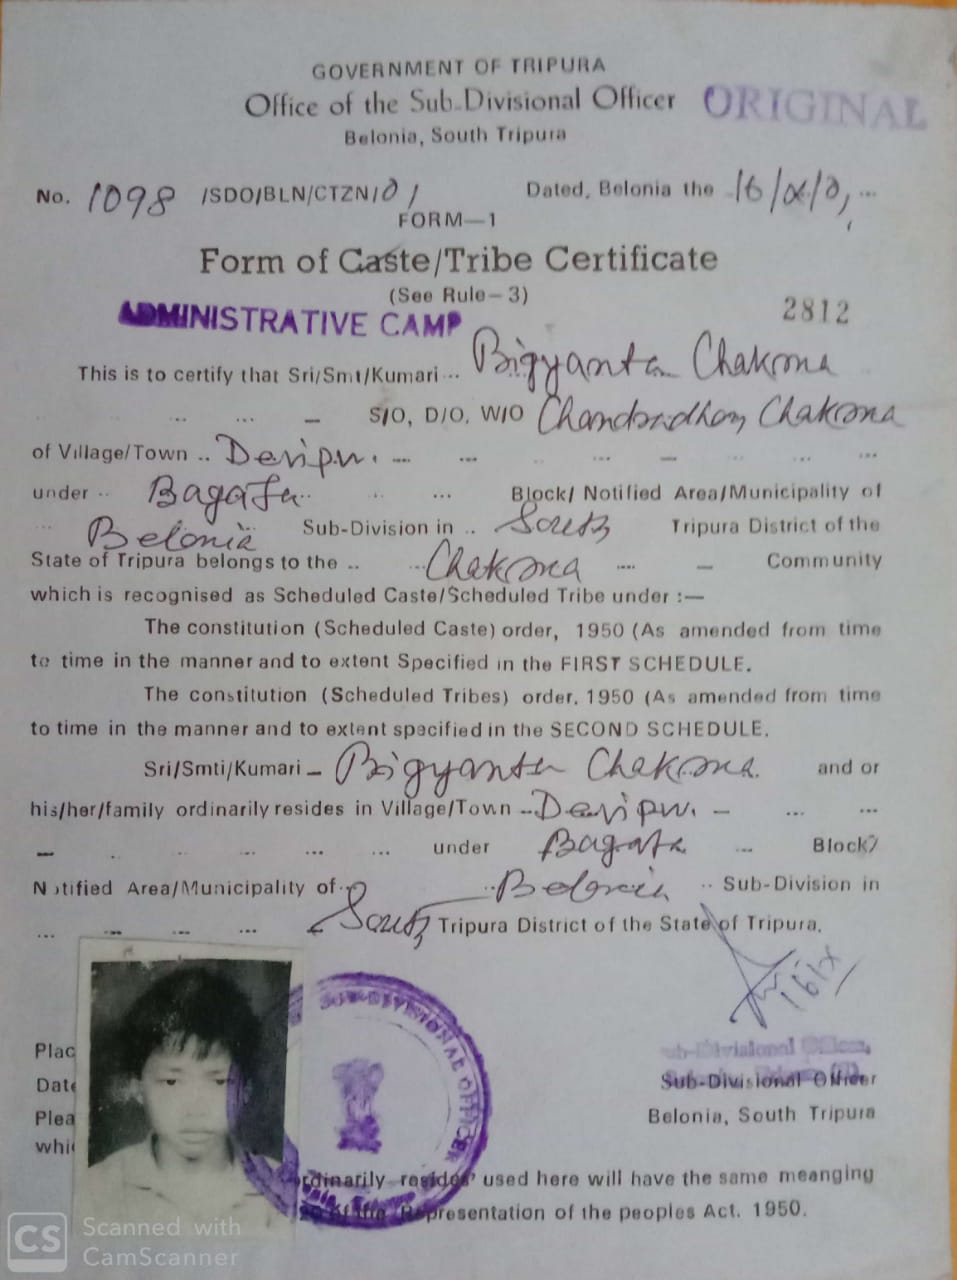 GOVERNMENT OF TRIPURA
Office of the Sub-Divisional Officer
ORIGINAL
Belonia, South Tripura
No. 1098 /SDO/BLN/CTZN/01
Dated, Belonia the 16/X/01
FORM—1
Form of Caste/Tribe Certificate
(See Rule—3)
2812
ADMINISTRATIVE CAMP
This is to certify that Sri/Smt/Kumari Bigyanta Chakma
S/O, D/O, W/O Chakma
of Village/Town Devipur
under Bagafa Block/ Notified Area/Municipality of
Belonia Sub-Division in South Tripura District of the
State of Tripura belongs to the Chakma Community
which is recognised as Scheduled Caste/Scheduled Tribe under :—
The constitution (Scheduled Caste) order, 1950 (As amended from time
to time in the manner and to extent Specified in the FIRST SCHEDULE.
The constitution (Scheduled Tribes) order, 1950 (As amended from time
to time in the manner and to extent specified in the SECOND SCHEDULE.
Sri/Smti/Kumari Bigyanta Chakma and or
his/her/family ordinarily resides in Village/Town Devipur
under Bagafa Block/
Notified Area/Municipality of Belonia Sub-Division in
South Tripura District of the State of Tripura.
16/X
SUB-DIVISIONAL OFFICER
Plac
Date
Sub-Divisional Officer
Plea
Belonia, South Tripura
whic
ordinarily reside' used here will have the same meanging
Representation of the peoples Act. 1950.
CS Scanned with
CamScanner